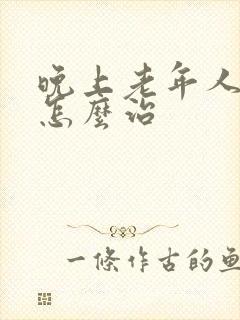 晚上老年人
怎麼治
一條作古的魚